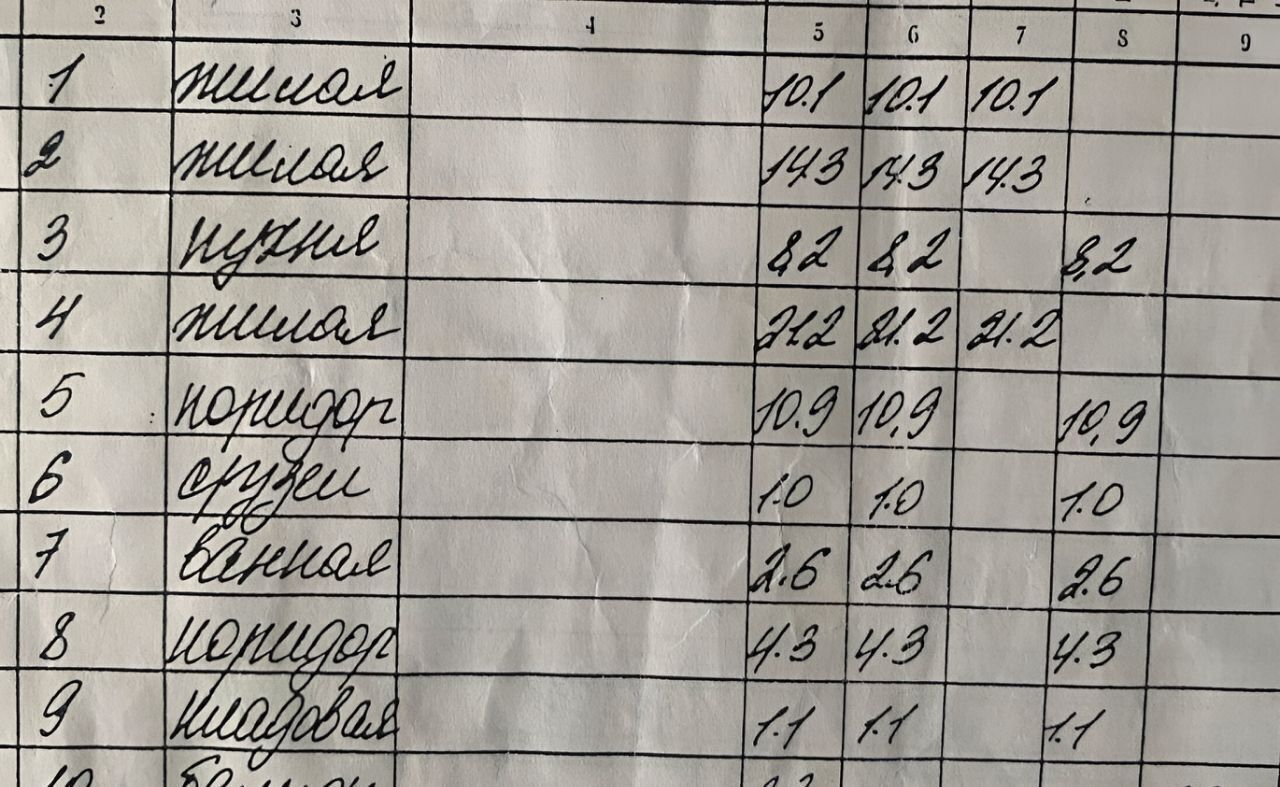 2 3 4 5 6 7 8 9
1 жилая 10.1 10.1 10.1
2 жилая 14.3 14.3 14.3
3 кухня 8,2 8,2 8,2
4 жилая 21.2 21.2 21.2
5 коридор 10.9 10,9 10,9
6 с/узел 1.0 1.0 1.0
7 ванная 2.6 2.6 2.6
8 коридор 4.3 4.3 4.3
9 кладовая 1.1 1.1 1.1
10